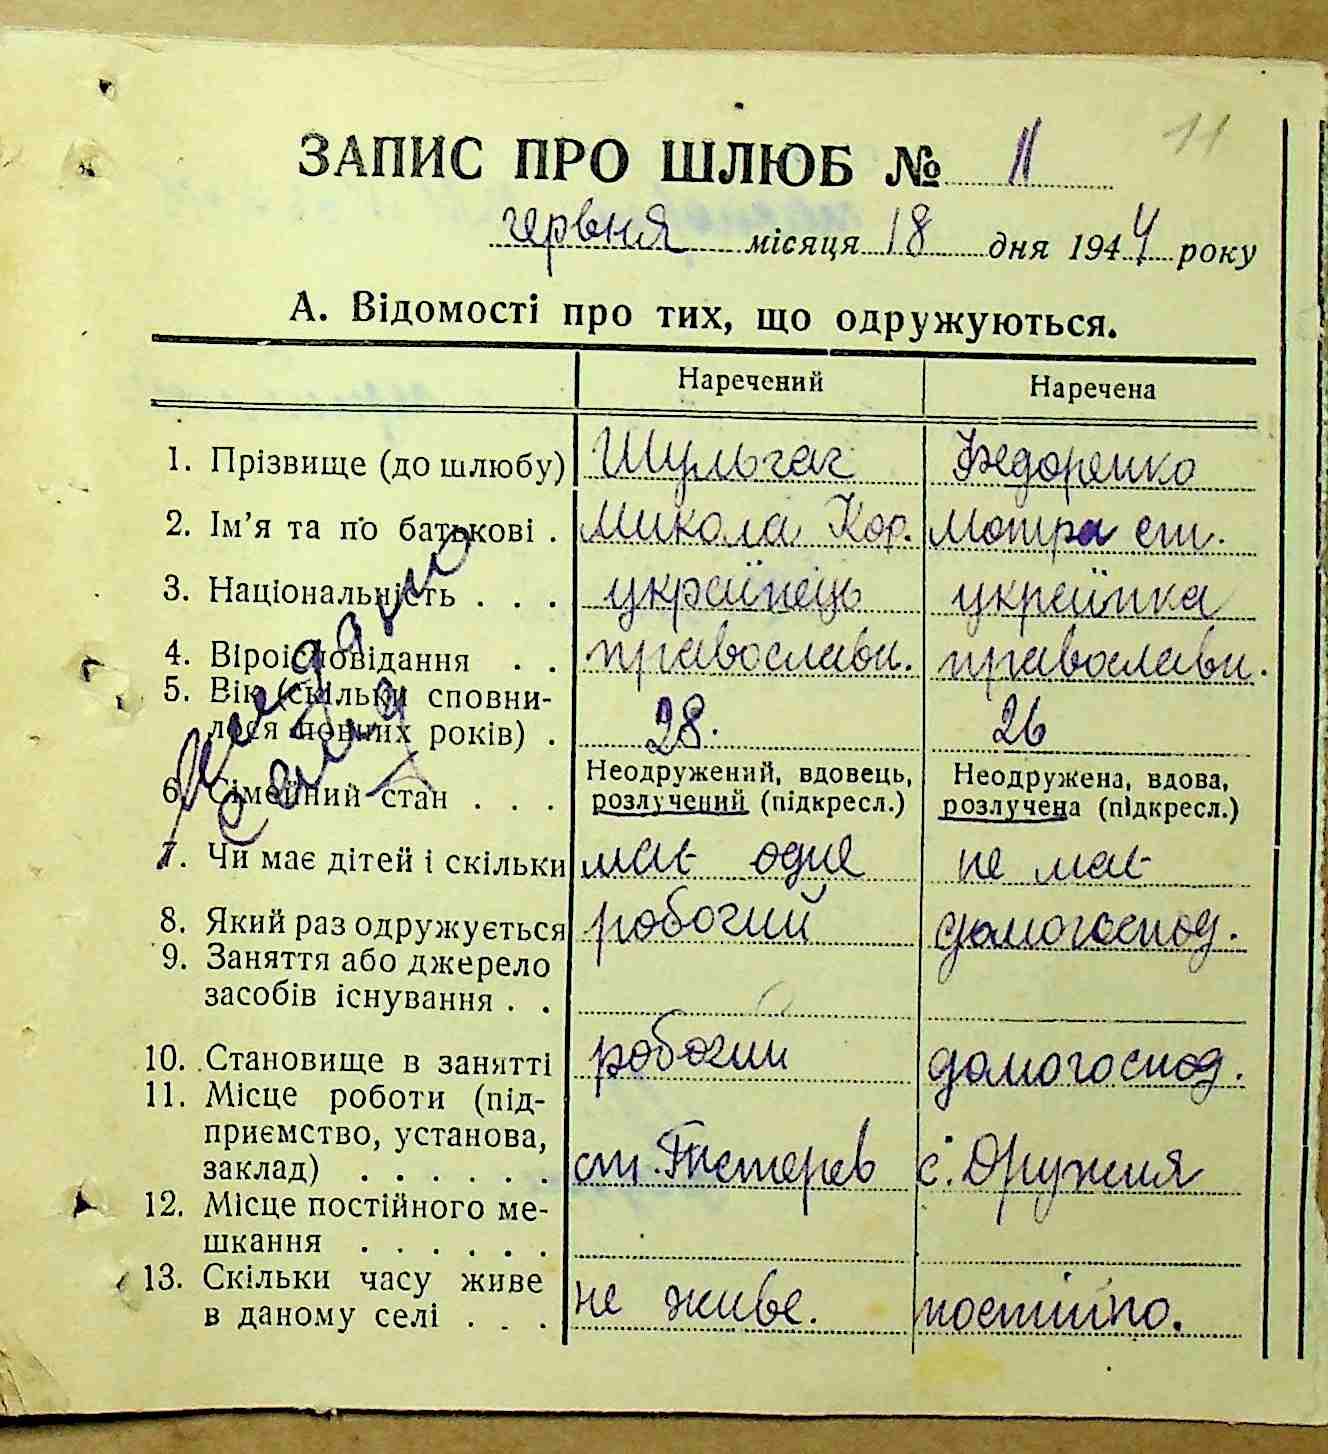 11
ЗАПИС ПРО ШЛЮБ № 11
червня місяця 18 дня 1944 року
А. Відомості про тих, що одружуються.
Наречений Наречена
1. Прізвище (до шлюбу) Шульгач Федоренко
2. Ім'я та по батькові . Микола Кор. Мотря ст.
3. Національність . . . українець українка
4. Віроісповідання . . православн. православн.
5. Вік (скільки сповни-
лося повних років) . 28. 26
6. Сімейний стан . . . Неодружений, вдовець, Неодружена, вдова,
розлучений (підкресл.) розлучена (підкресл.)
7. Чи має дітей і скільки має одне не має
8. Який раз одружується робочий домогоспод.
9. Заняття або джерело
засобів існування . .
10. Становище в занятті робочий домогоспод.
11. Місце роботи (під-
приємство, установа,
заклад) . . . . . . ст. Тетерев с. Дружня
12. Місце постійного ме-
шкання . . . . . .
13. Скільки часу живе
в даному селі . . . не живе. постійно.